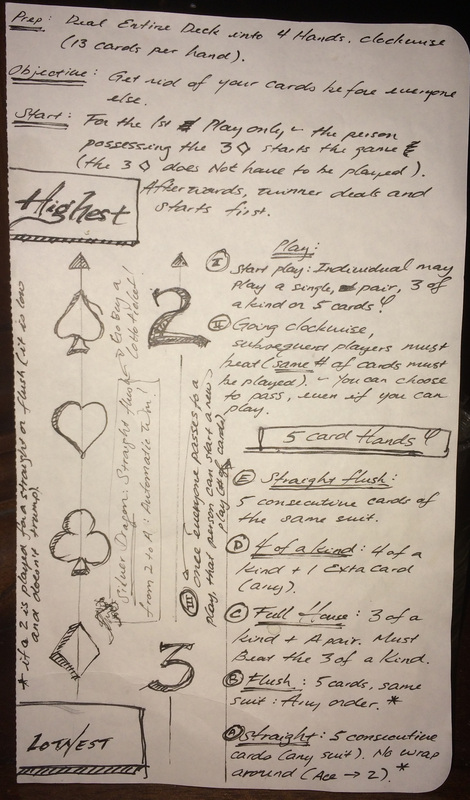 Prep: Deal Entire Deck into 4 Hands. clockwise
(13 cards per hand).
Objective: Get rid of your cards before everyone
else.
Start: For the 1st Play only, - the person
possessing the 3 ◇ starts the game
(the 3 ◇ does Not have to be played).
Afterwards, winner deals and
starts first.
Highest
2
3
LOWEST
* if a 2 is played for a straight or flush (it is low
and doesn't trump).
Silver Dragon: Straight flush
from 2 to A: Automatic Win!
Go Buy a
Lotto ticket!
III Once everyone passes to a
play, that person can start a new
play (# of cards)
Play:
I Start play: Individual may
play a single, pair, 3 of
a kind or 5 cards
II Going clockwise,
subsequent players must
beat (same # of cards must
be played). - You can choose
to pass, even if you can
play.
5 card Hands
E Straight flush:
5 consecutive cards of
the same suit.
D 4 of a kind: 4 of a
kind + 1 Exta card
(any).
C Full House: 3 of a
kind + A pair. Must
Beat the 3 of a Kind.
B Flush: 5 cards, same
suit: Any order. *
A Straight: 5 consecutive
cards (any suit). No wrap
around (Ace → 2). *